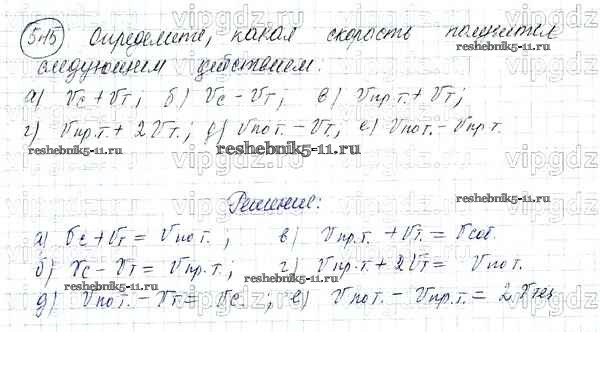 545 Определите, какая скорость получится
следующим действием:
а) Vс + Vт; б) Vс - Vт; в) Vпр.т. + Vт;
г) Vпр.т. + 2Vт.; д) Vпот. - Vт; е) Vпот. - Vпр.т.
reshebnik5-11.ru
Решение:
а) Vс + Vт = Vпо т.; в) Vпр.т. + Vт = Vсоб.
б) Vс - Vт = Vпр.т.; г) Vпр.т. + 2Vт = Vпот.
д) Vпо т. - Vт = Vс.; е) Vпот. - Vпр.т. = 2.Vтеч
vipgdz.com